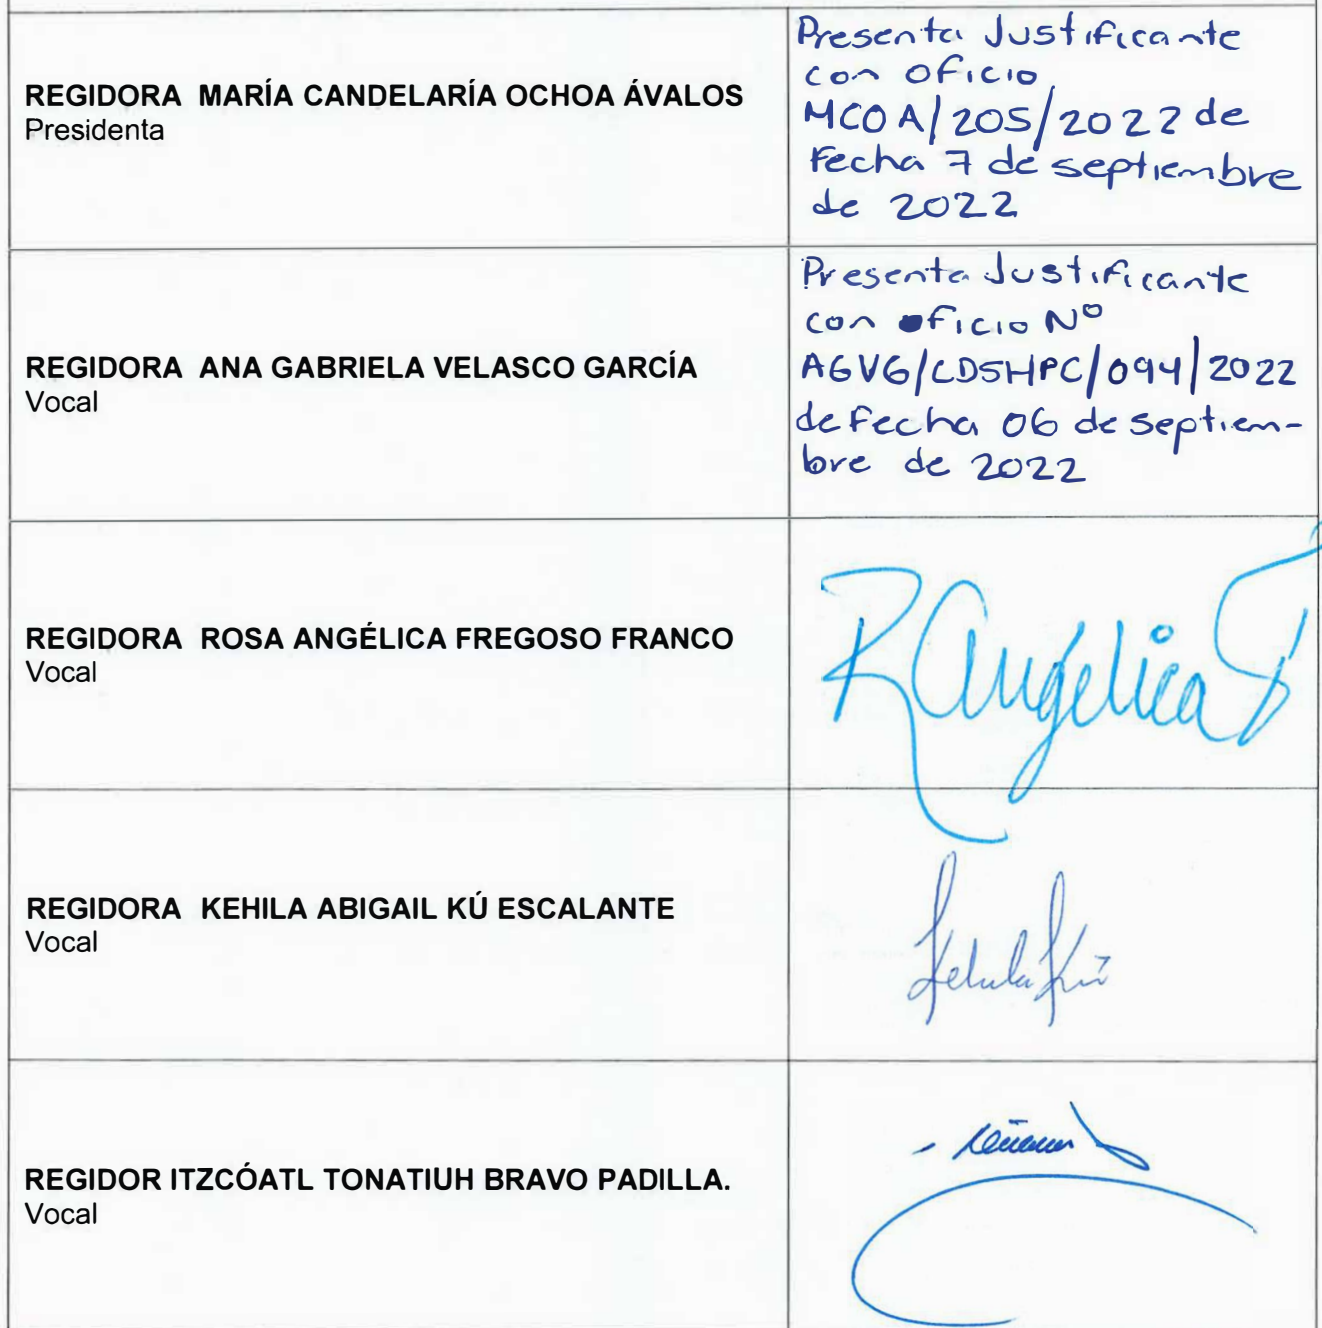 REGIDORA MARÍA CANDELARÍA OCHOA ÁVALOS
Presidenta
Presenta Justificante
con oficio
MCOA/205/2022 de
fecha 7 de septiembre
de 2022
REGIDORA ANA GABRIELA VELASCO GARCÍA
Vocal
Presenta Justificante
con oficio Nº
AGVG/CDSHPC/094/2022
de fecha 06 de septiem-
bre de 2022
REGIDORA ROSA ANGÉLICA FREGOSO FRANCO
Vocal
R Angelica F
REGIDORA KEHILA ABIGAIL KÚ ESCALANTE
Vocal
Kehila Kú
REGIDOR ITZCÓATL TONATIUH BRAVO PADILLA.
Vocal